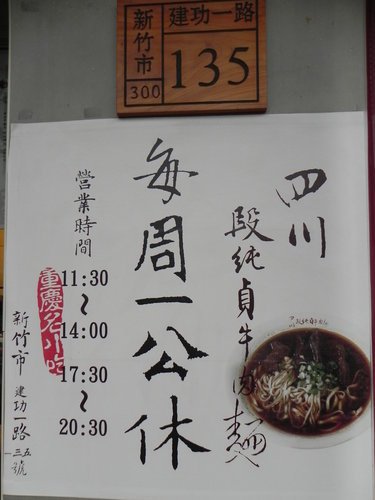 新竹市
300
建功一路
135
四川
段純貞牛肉麵
每周一公休
營業時間
11:30
～
14:00
17:30
～
20:30
重慶名小吃
新竹市建功一路
一三五號